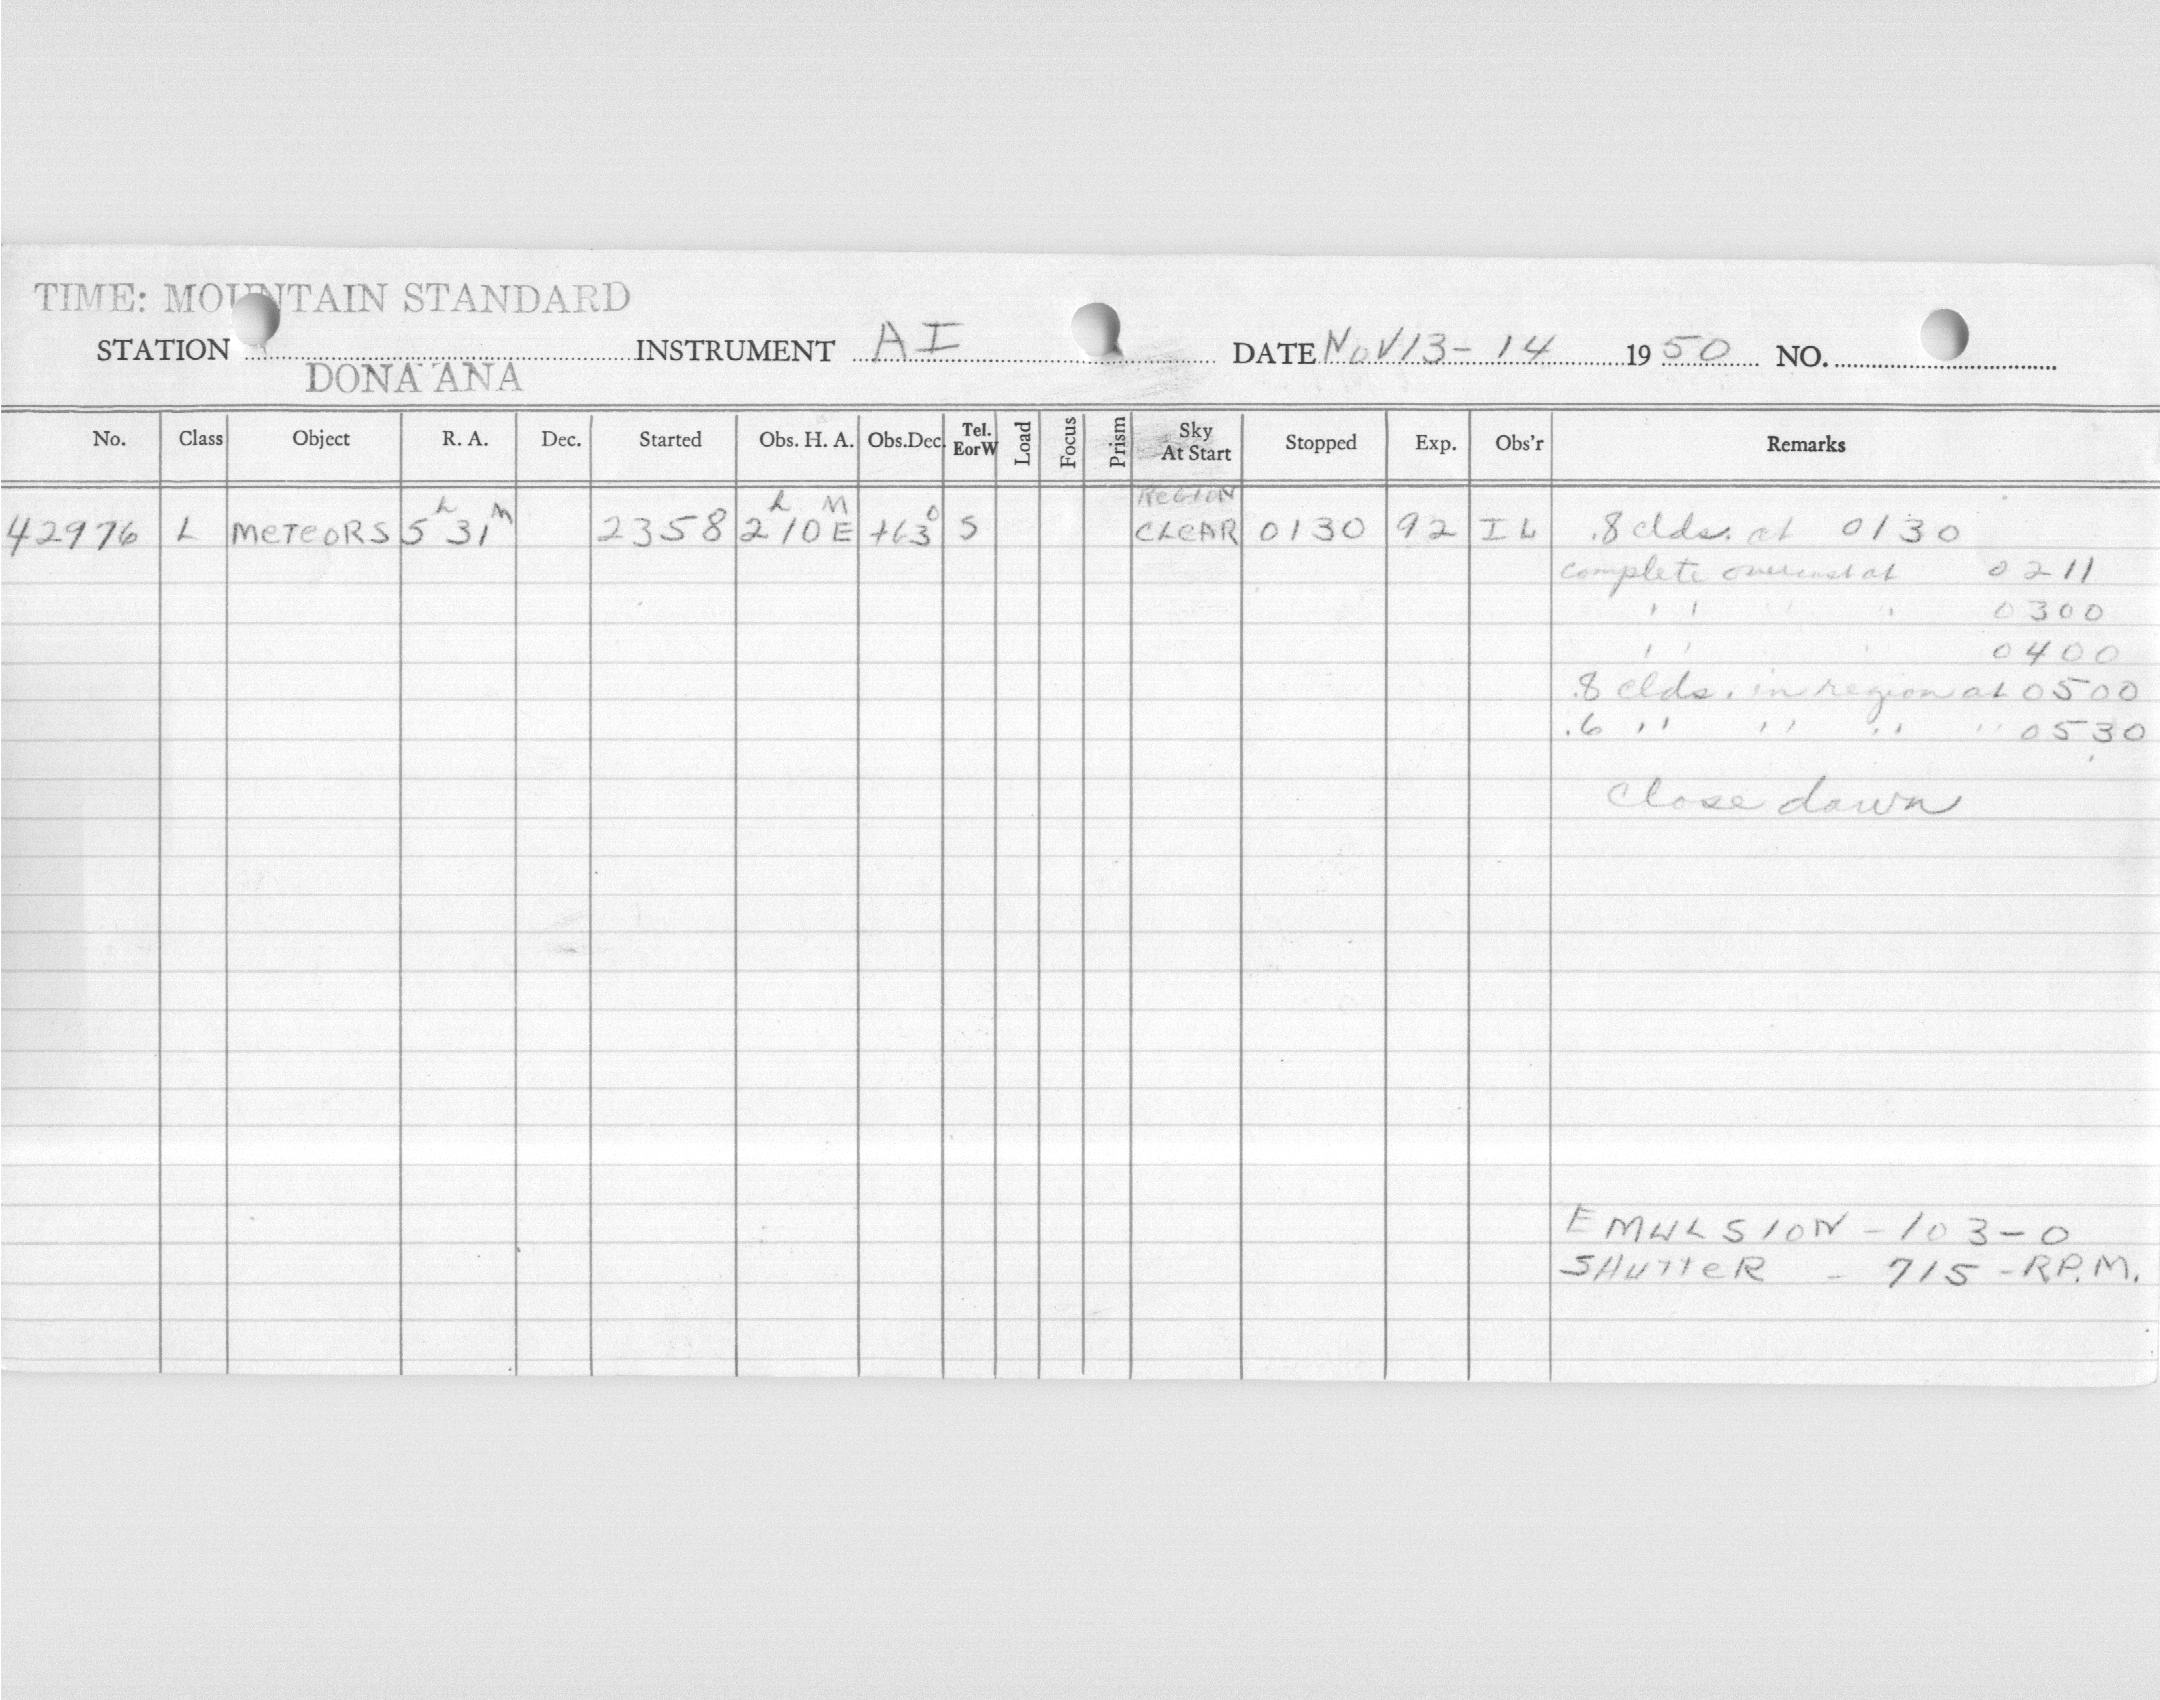 TIME: MOUNTAIN STANDARD
STATION INSTRUMENT AI DATE NOV 13-14 1950 NO.
DONA ANA
No. Class Object R. A. Dec. Started Obs. H. A. Obs.Dec. Tel. EorW Load Focus Prism Sky At Start Stopped Exp. Obs'r Remarks
REGION
42976 L METEORS 5h 31M 2358 2h 10M E +63° S CLEAR 0130 92 IL .8 clds. at 0130
complete overcast at 0211
" " " 0300
" " " 0400
.8 clds. in region at 0500
.6 " " " " 0530
Close dawn
EMULSION - 103-O
SHUTTER - 715 - R.P.M.